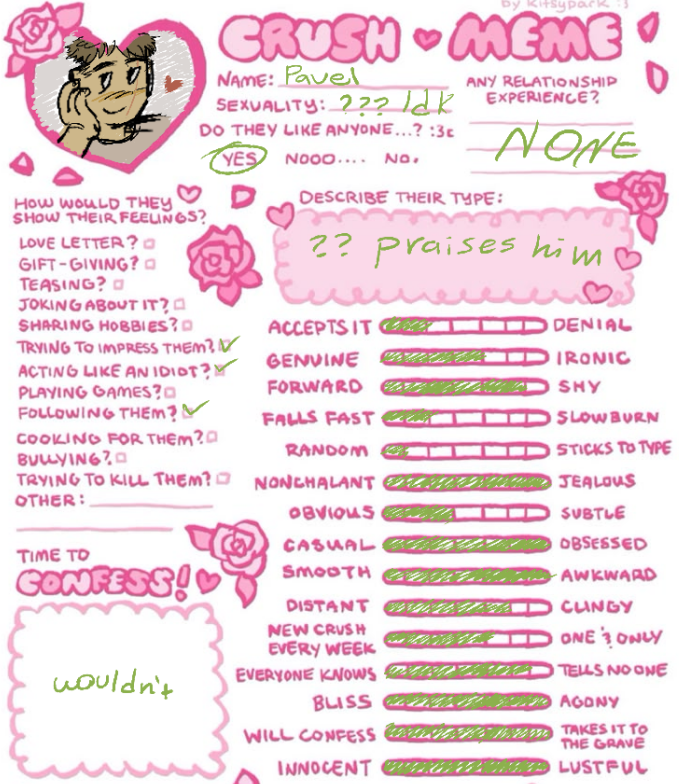 by kitsypark :3
CRUSH MEME
NAME: Pavel
SEXUALITY: ??? Idk
DO THEY LIKE ANYONE...? :3c
YES NOOO.... NO.
ANY RELATIONSHIP
EXPERIENCE?
NONE
HOW WOULD THEY
SHOW THEIR FEELINGS?
LOVE LETTER?
GIFT-GIVING?
TEASING?
JOKING ABOUT IT?
SHARING HOBBIES?
TRYING TO IMPRESS THEM?
ACTING LIKE AN IDIOT?
PLAYING GAMES?
FOLLOWING THEM?
COOKING FOR THEM?
BULLYING?
TRYING TO KILL THEM?
OTHER:
DESCRIBE THEIR TYPE:
?? praises him
ACCEPTS IT DENIAL
GENUINE IRONIC
FORWARD SHY
FALLS FAST SLOWBURN
RANDOM STICKS TO TYPE
NONCHALANT JEALOUS
OBVIOUS SUBTLE
CASUAL OBSESSED
SMOOTH AWKWARD
DISTANT CLINGY
NEW CRUSH
EVERY WEEK ONE & ONLY
EVERYONE KNOWS TELLS NO ONE
BLISS AGONY
WILL CONFESS TAKES IT TO
THE GRAVE
INNOCENT LUSTFUL
TIME TO
CONFESS!
wouldn't